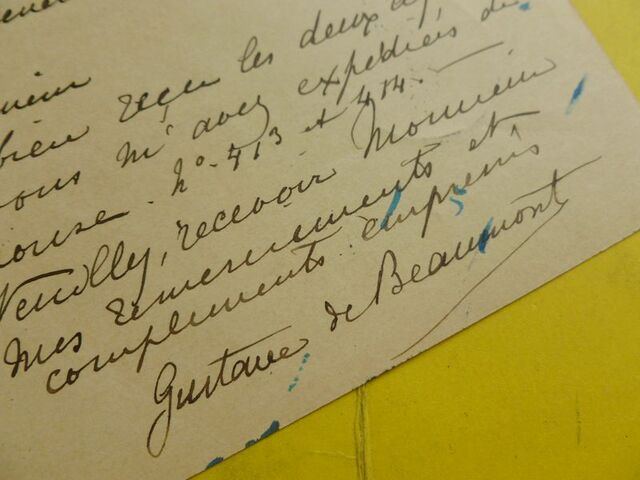 bien reçu les deux
vous m'avez expédiés de
N°. 413 et 414. —
Veuillez, recevoir Monsieur
mes remerciements et
compliments empressés
Gustave de Beaumont